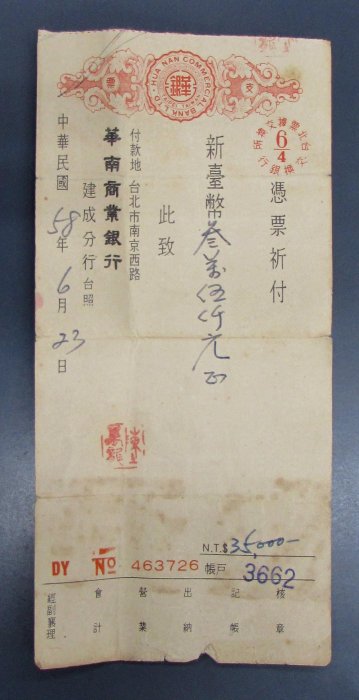 HUA NAN COMMERCIAL BANK LTD.
支
票
華銀
台北市銀行
6/4
憑票祈付
新臺幣叁萬伍仟元正
此致
付款地 台北市南京西路
華南商業銀行
建成分行台照
中華民國58年6月23日
N.T.$35,000-
DY № 463726 帳戶 3662
核章
記帳
出納
營業
會計
經副襄理